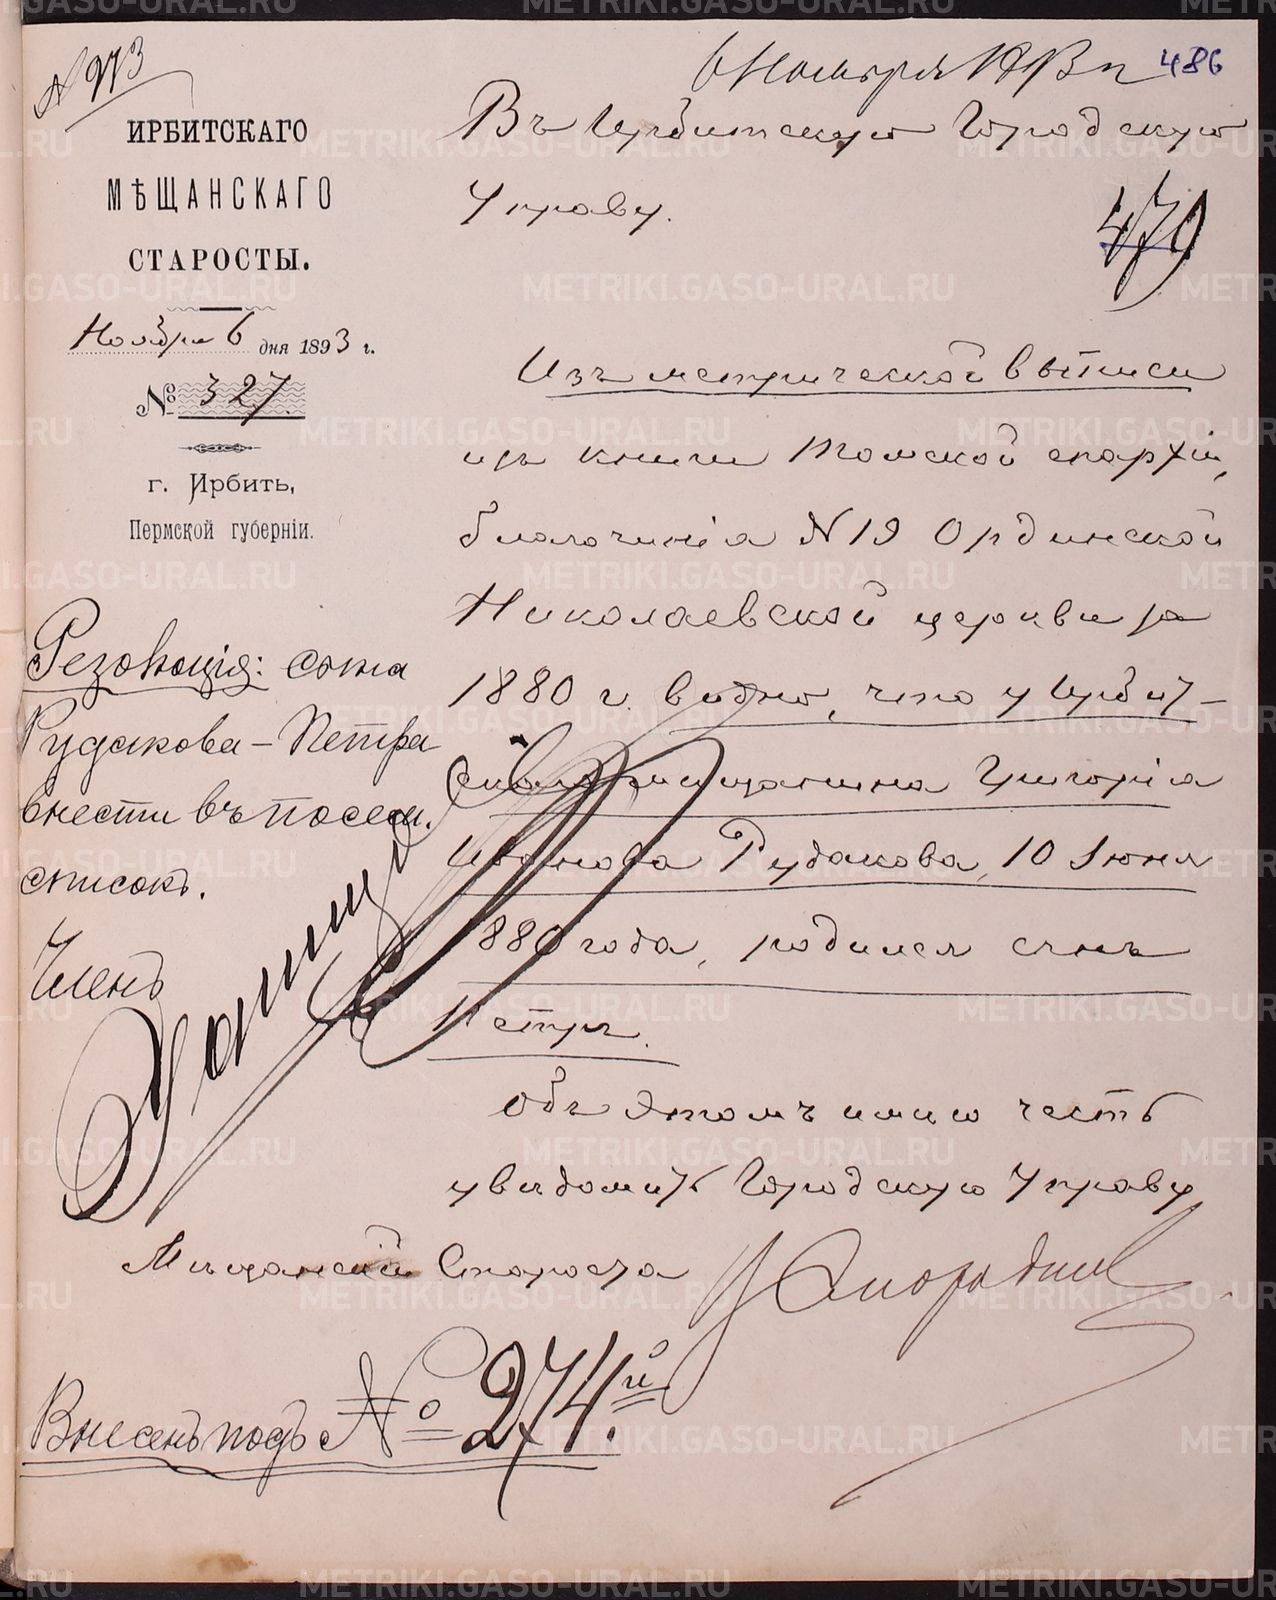 6 Ноября 1893 г
486
№ 973
ИРБИТСКАГО
МѢЩАНСКАГО
СТАРОСТЫ.
Ноября 6 дня 1893 г.
№ 327.
г. Ирбить,
Пермской губерніи.
Въ Ирбитскую Городскую
Управу.
479
Изъ метрической выписи
изъ книги Томской епархіи,
благочинія N 19 Ординской
Николаевской церкви за
1880 г. видно, что у Ирбит-
скаго мещанина Григорія
Иванова Рудакова, 10 Іюня
1880 года, родился сынъ
Петръ.
Объ этомъ имею честь
уведомить Городскую Управу
Мещанскій Староста
Резолюція: сына
Рудакова - Петра
внести въ посем.
списокъ.
Членъ
Внесенъ подъ № 274.й
METRIKI.GASO-URAL.RU